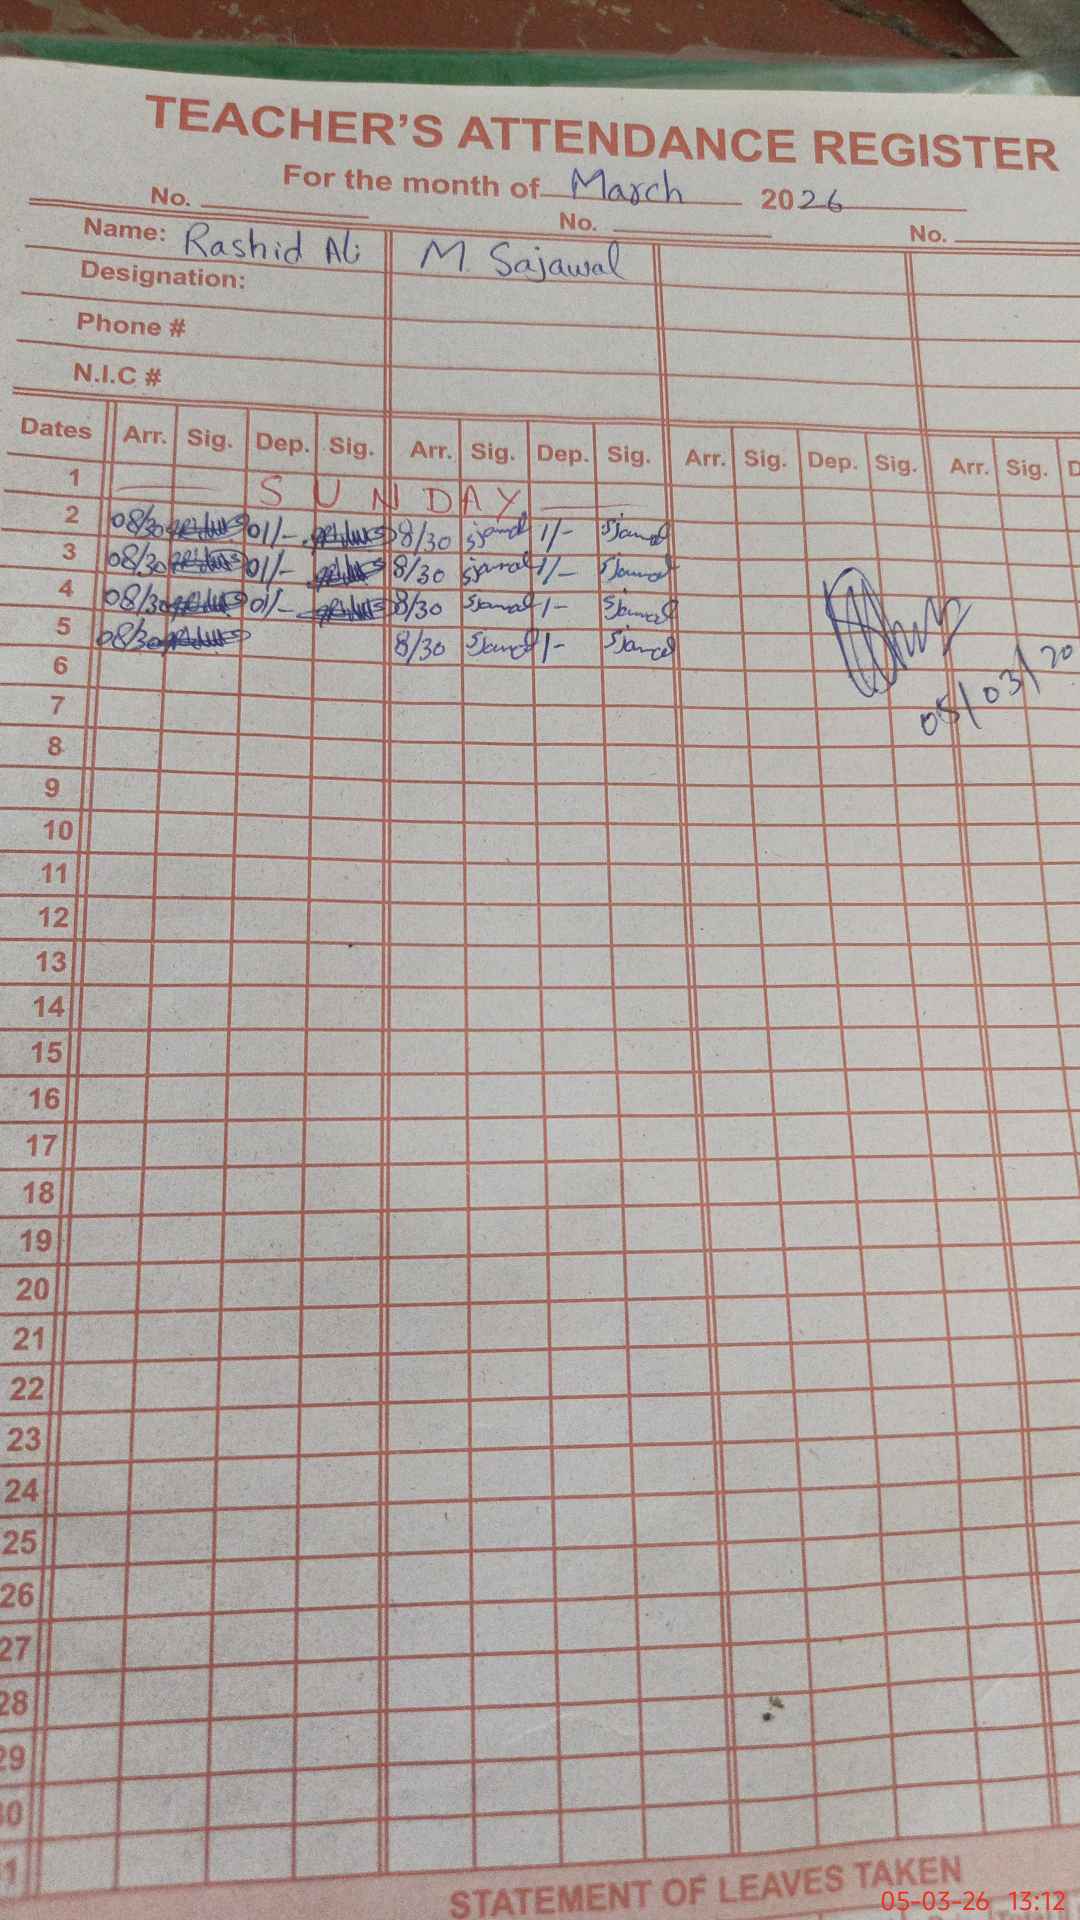 TEACHER'S ATTENDANCE REGISTER
For the month of March 2026
No. No. No.
Name: Rashid Ali M. Sajawal
Designation:
Phone #
N.I.C #
Dates Arr. Sig. Dep. Sig. Arr. Sig. Dep. Sig. Arr. Sig. Dep. Sig. Arr. Sig. D
1 SUNDAY
2 08/30 01/- 8/30 1/-
3 08/30 01/- 8/30 1/-
4 08/30 01/- 8/30 1-
5 08/30 8/30 1-
6
05/03/20
7
8
9
10
11
12
13
14
15
16
17
18
19
20
21
22
23
24
25
26
27
28
29
30
31
STATEMENT OF LEAVES TAKEN
05-03-26 13:12